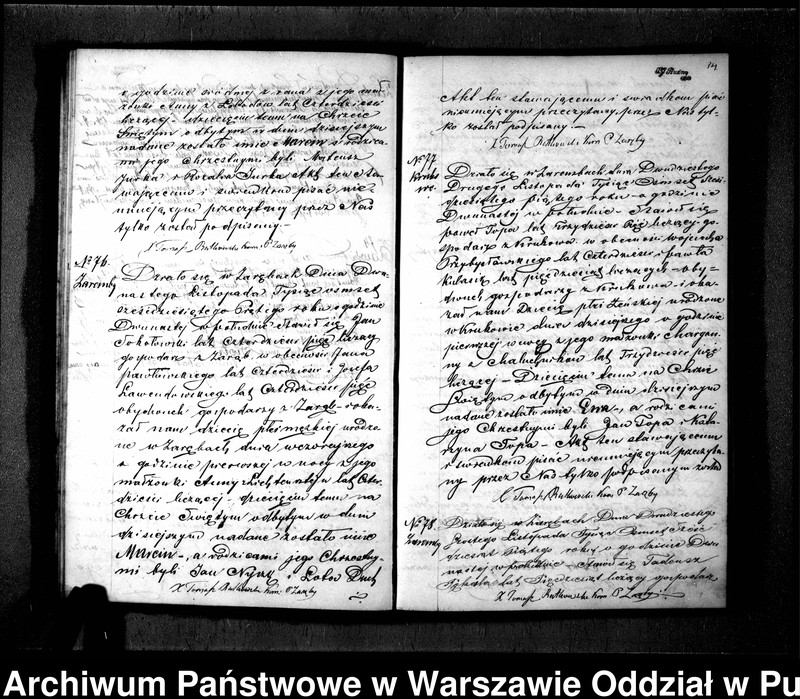 o godzinie siódmej z rana z jego mał
żonki Anny z lat Czterdzieści
liczącej. Dziecięciu temu na Chrzcie
Świętym odbytym w dniu dzisiejszym
nadane zostało imie Marcin a rodzica
mi jego Chrzestnymi byli Mateusz
Jurka i Rozalia Jurka Akt ten sta
wającemu i świadkom pisać nie
umiejącym przeczytany przez Nas
tylko został podpisany.—
X Tomasz Rutkowski Kom P Zaręby
No 76.
Zaremby
Działo się w Zarębach Dnia Dwu
nastego Listopada Tysiąc ośmset
sześćdziesiątego Piątego roku o godzinie
Dwunastej w południe stawił się Jan
Sokołowski lat Czterdzieści pięć liczący
gospodarz z Zaręb w obecności Jana
Pawłowskiego lat Czterdzieści i Józefa
Lawendowskiego lat Czterdzieści pięć
obydwóch gospodarzy z Zaręb i oka
zał nam dziecię płci męzkiej urodzo
ne w Zarębach dnia wczorajszego
o godzinie pierwszej w nocy z jego
małżonki Anny lat Czter
dzieści liczącej – dziecięciu temu na
Chrzcie Świętym odbytym w dniu
dzisiejszym nadane zostało imie
Marcin –, a rodzicami jego Chrzestny
mi byli Jan i
X Tomasz Rutkowski Kom P Zaręby
Akt ten stawającemu i świadkom pisać
nieumiejącym przeczytany przez Nas tyl
ko został podpisany.—
X Tomasz Rutkowski Kom P Zaręby
No 77
Działo się w Zarembach dnia Dwudziestego
Drugiego Listopada Tysiąc Ośmset Sześć
dziesiątego piątego roku o godzinie
Dwunastej w południe – Stawił się
Paweł Topa lat Trzydzieści Pięć liczący go
spodarz z Krukowa w obecności Wojciecha
Przybysławskiego lat Czterdzieści i Pawła
Kulasik lat pięćdziesiąt liczących oby
dwóch gospodarzy z Krukowa i oka
zał nam Dziecię płci Żeńskiej urodzone
w Krukowie dnia dzisiejszego o godzinie
pierwszej w nocy z jego małżonki
z lat Trzydzieści pięć
liczącej – Dziecięciu temu na Chrzcie
Świętym odbytym w dniu dzisiejszym
nadane zostało imie Ewa –, a rodzicami
jego Chrzestnymi byli Jan Topa i Kata
rzyna Topa – Akt ten stawającemu
i świadkom pisać nieumiejącym przeczyta
ny przez Nas tylko podpisanym został
X Tomasz Rutkowski Kom P Zaręby
No 78
Zaremby
Działo się w Zarębach Dnia Dwudziestego
Szóstego Listopada Tysiąc Ośmset Sześć
dziesiąt Piątego roku o godzinie Dwu
nastej w południe – Stawił się Tadeusz
lat Pięćdziesiąt liczący gospodarz
X Tomasz Rutkowski Kom P Zaręby
Archiwum Państwowe w Warszawie Oddział w Pu